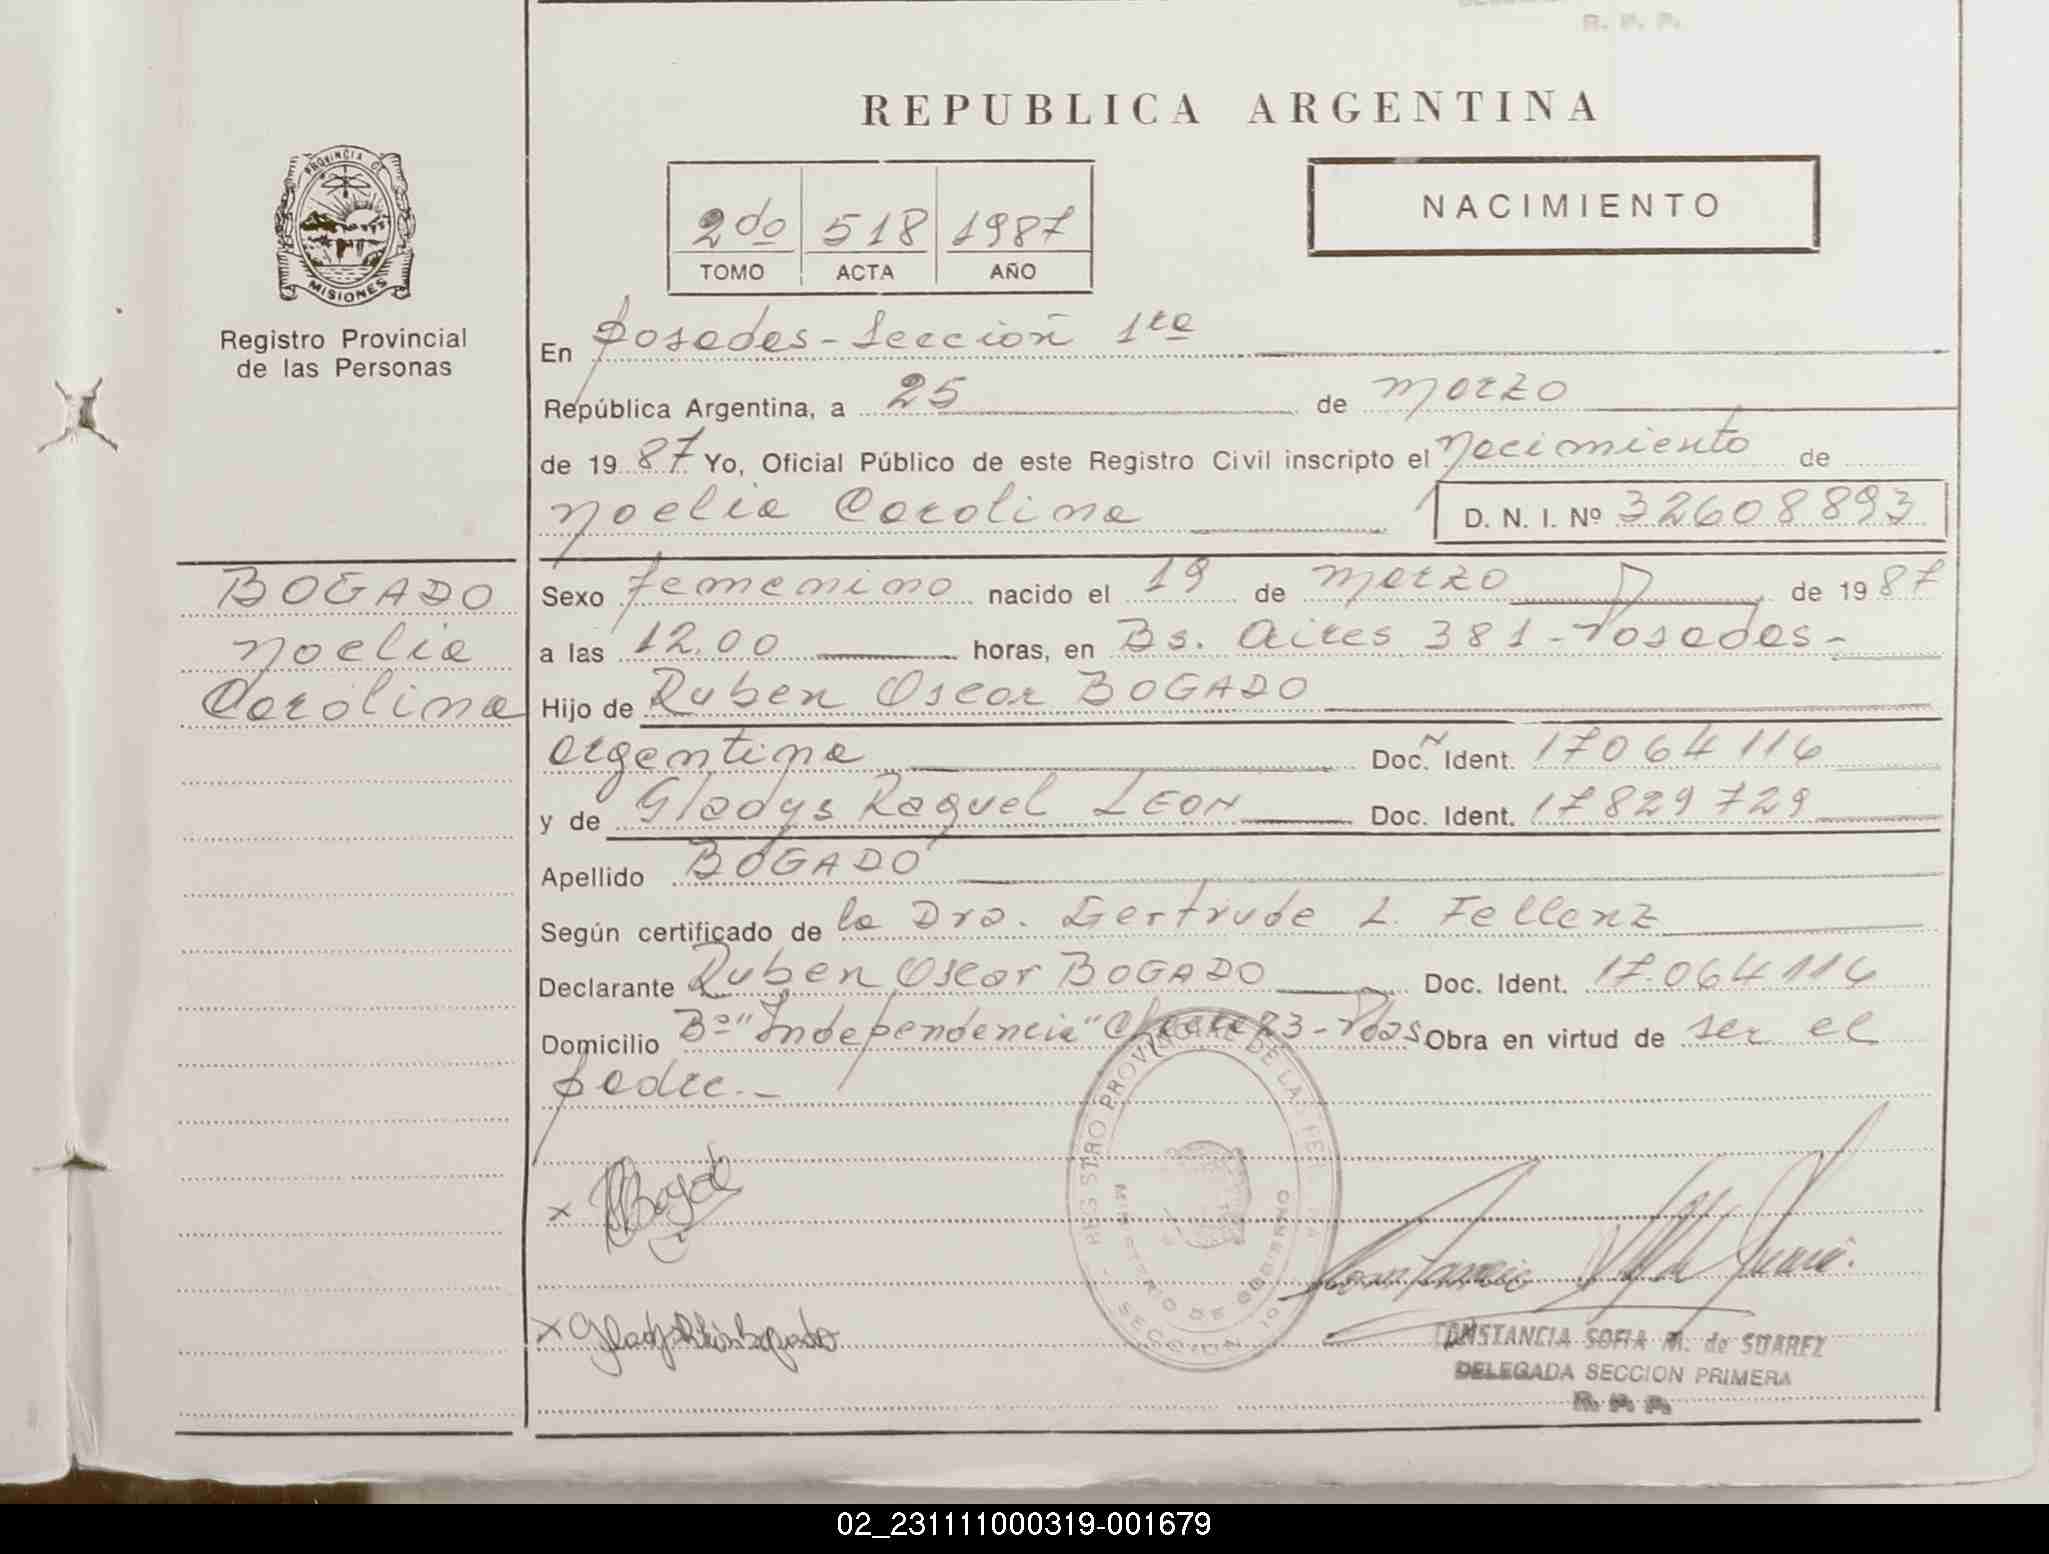 R. P. P.
REPUBLICA ARGENTINA
PROVINCIA DE
MISIONES
Registro Provincial
de las Personas
2do 518 1987
TOMO ACTA AÑO
NACIMIENTO
En Posadas - Sección 1ra
República Argentina, a 25 de Marzo
de 1987 Yo, Oficial Público de este Registro Civil inscripto el Nacimiento de
Noelia Carolina D. N. I. Nº 32608893
BOGADO
Noelia
Carolina
Sexo femenino nacido el 19 de Marzo de 1987
a las 12.00 horas, en Bs. Aires 381 - Posadas -
Hijo de Ruben Oscar BOGADO
argentina Doc. Ident. 17064116
y de Gladys Raquel LEON Doc. Ident. 17829729
Apellido BOGADO
Según certificado de la Dra. Gertrude L. Fellenz
Declarante Ruben Oscar BOGADO Doc. Ident. 17.064116
Domicilio Bº "Independencia" 23 - Pdas Obra en virtud de ser el
padre. -
REGISTRO PROVINCIAL DE LAS PER
MINISTERIO DE GOBIERNO
SECCION 1º
x RBogado
x
CONSTANCIA SOFIA M. de SUAREZ
DELEGADA SECCION PRIMERA
R. P. P.
02_231111000319-001679